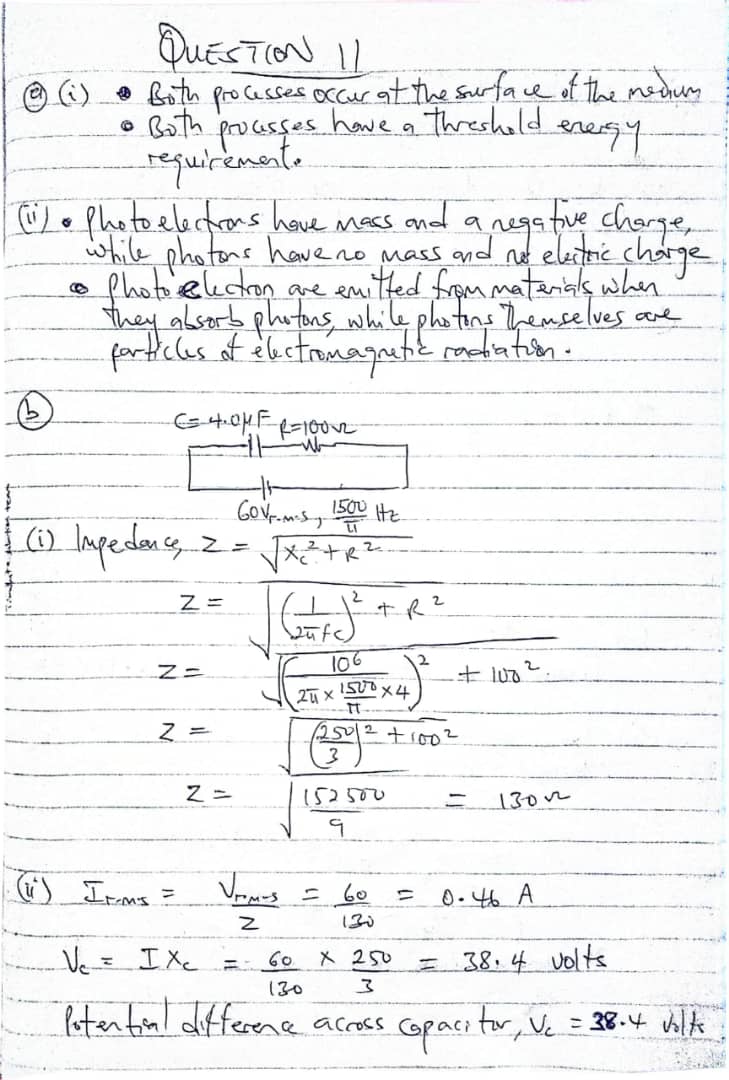 QUESTION 11
(a) (i) • Both processes occur at the surface of the medium
• Both processes have a threshold energy
requirement.
(ii) • Photoelectrons have mass and a negative charge,
while photons have no mass and no electric charge
• Photoelectron are emitted from materials when
they absorb photons, while photons themselves are
particles of electromagnetic radiation.
(b)
C= 4.0μF R=100Ω
60Vr.m.s, 1500/π Hz
(i) Impedance, Z = √(Xc² + R²)
Z = √((1/2πfc)² + R²)
Z = √((10⁶/(2π × 1500/π × 4))² + 100²)
Z = √((250/3)² + 100²)
Z = √(152500/9) = 130Ω
(ii) Ir.m.s = Vr.m.s/Z = 60/130 = 0.46 A
Vc = IXc = 60/130 × 250/3 = 38.4 volts
Potential difference across capacitor, Vc = 38.4 volts